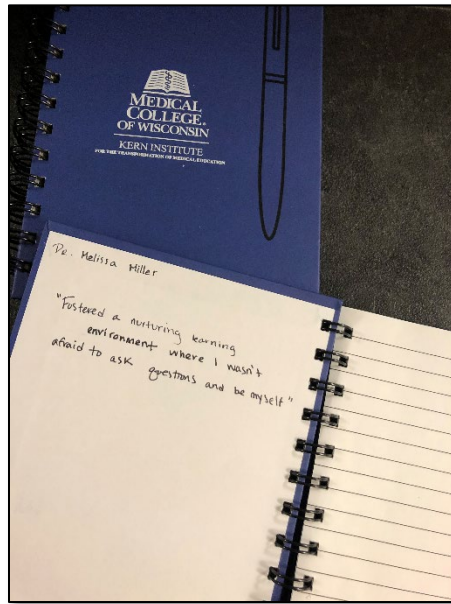 MEDICAL
COLLEGE
OF WISCONSIN
KERN INSTITUTE
FOR THE TRANSFORMATION OF MEDICAL EDUCATION
Dr. Melissa Miller
"Fostered a nurturing learning
environment where I wasn't
afraid to ask questions and be myself"